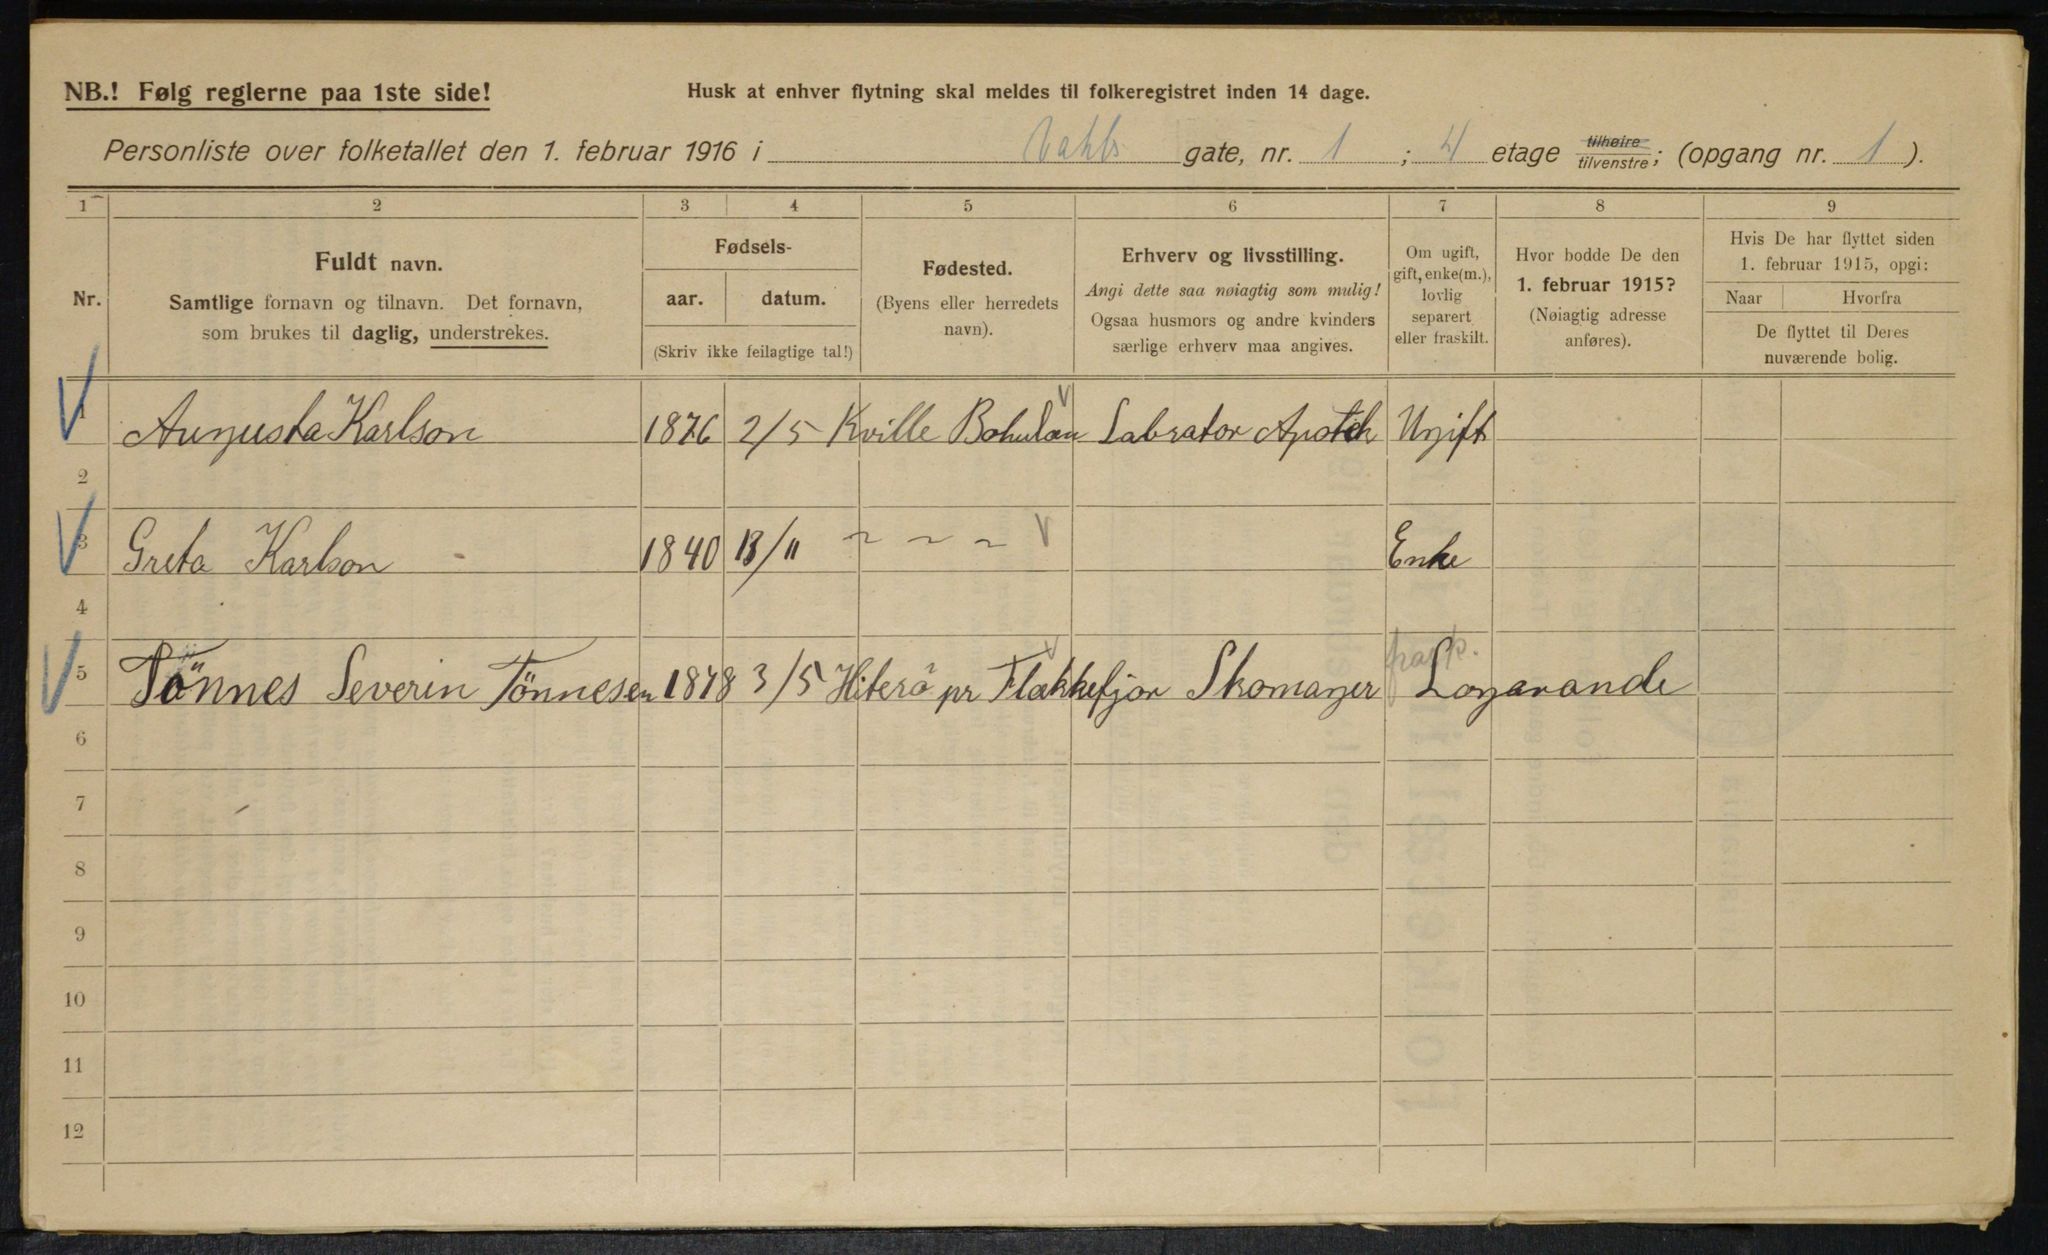 NB.! Følg reglerne paa 1ste side!
Husk at enhver flytning skal meldes til folkeregistret inden 14 dage.
Personliste over folketallet den 1. februar 1916 i Dahls gate, nr. 1 ; 4 etage tilhøire tilvenstre; (opgang nr. 1 ).
1 2 3 4 5 6 7 8 9
Nr.
Fuldt navn.
Samtlige fornavn og tilnavn. Det fornavn,
som brukes til daglig, understrekes.
Fødsels-
aar. datum.
(Skriv ikke feilagtige tal!)
Fødested.
(Byens eller herredets
navn).
Erhverv og livsstilling.
Angi dette saa nøiagtig som mulig!
Ogsaa husmors og andre kvinders
særlige erhverv maa angives.
Om ugift,
gift, enke(m.),
lovlig
separert
eller fraskilt.
Hvor bodde De den
1. februar 1915?
(Nøiagtig adresse
anføres).
Hvis De har flyttet siden
1. februar 1915, opgi:
Naar Hvorfra
De flyttet til Deres
nuværende bolig.
1 Augusta Karlson 1876 2/5 Kville Bohulän Labrator Apotek Ugift
2
3 Greta Karlson 1840 13/11 ~ ~ ~ Enke
4
5 Tönnes Severin Tönnesen 1878 3/5 Hiterö pr Flekkefjor Skomager Logerande
6
7
8
9
10
11
12